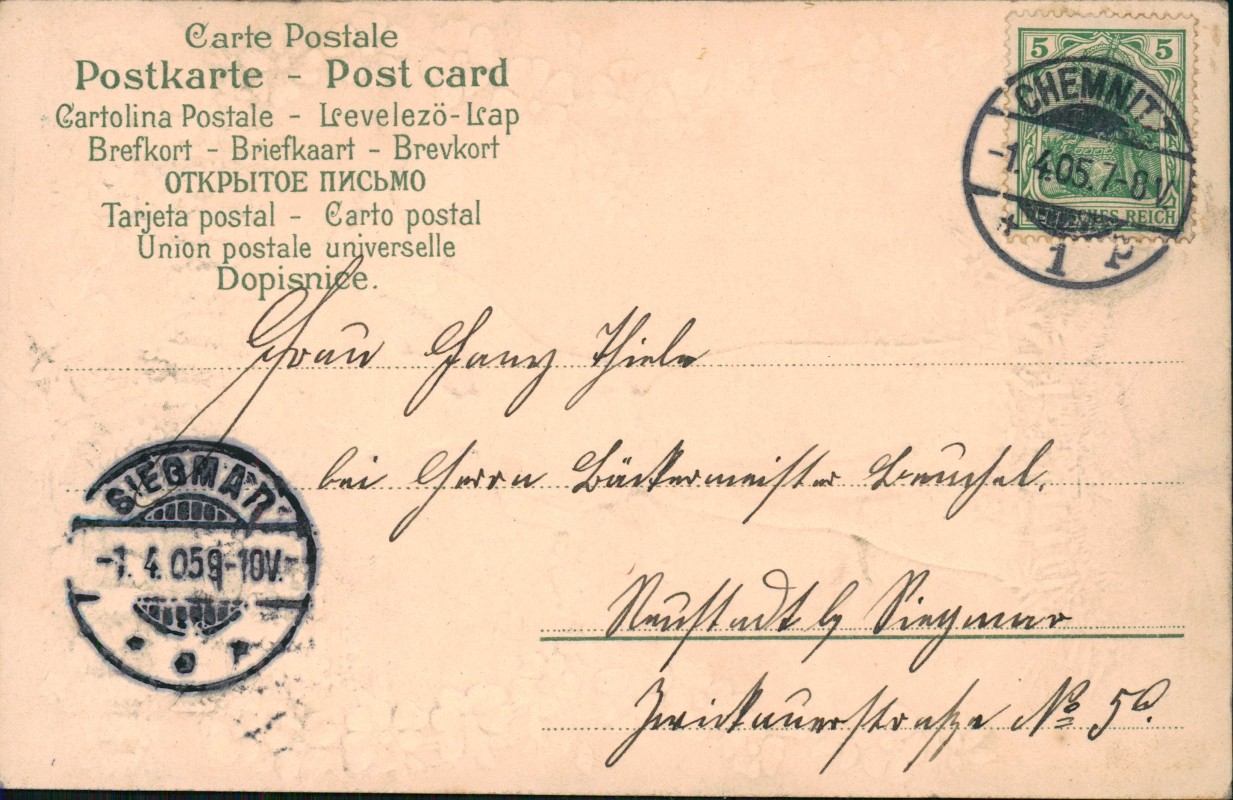 Carte Postale
Postkarte - Post card
Cartolina Postale - Levelezö-Lap
Brefkort - Briefkaart - Brevkort
ОТКРЫТОЕ ПИСЬМО
Tarjeta postal - Carto postal
Union postale universelle
Dopisnice.
5 5
DEUTSCHES REICH
CHEMNITZ
-1.4.05.7-8V.
* 1
Frau Thiele
bei Herrn Bäckermeister
Neustadt b/ Siegmar
Zwickauerstraße No
SIEGMAR
-1.4.05 9-10V.-